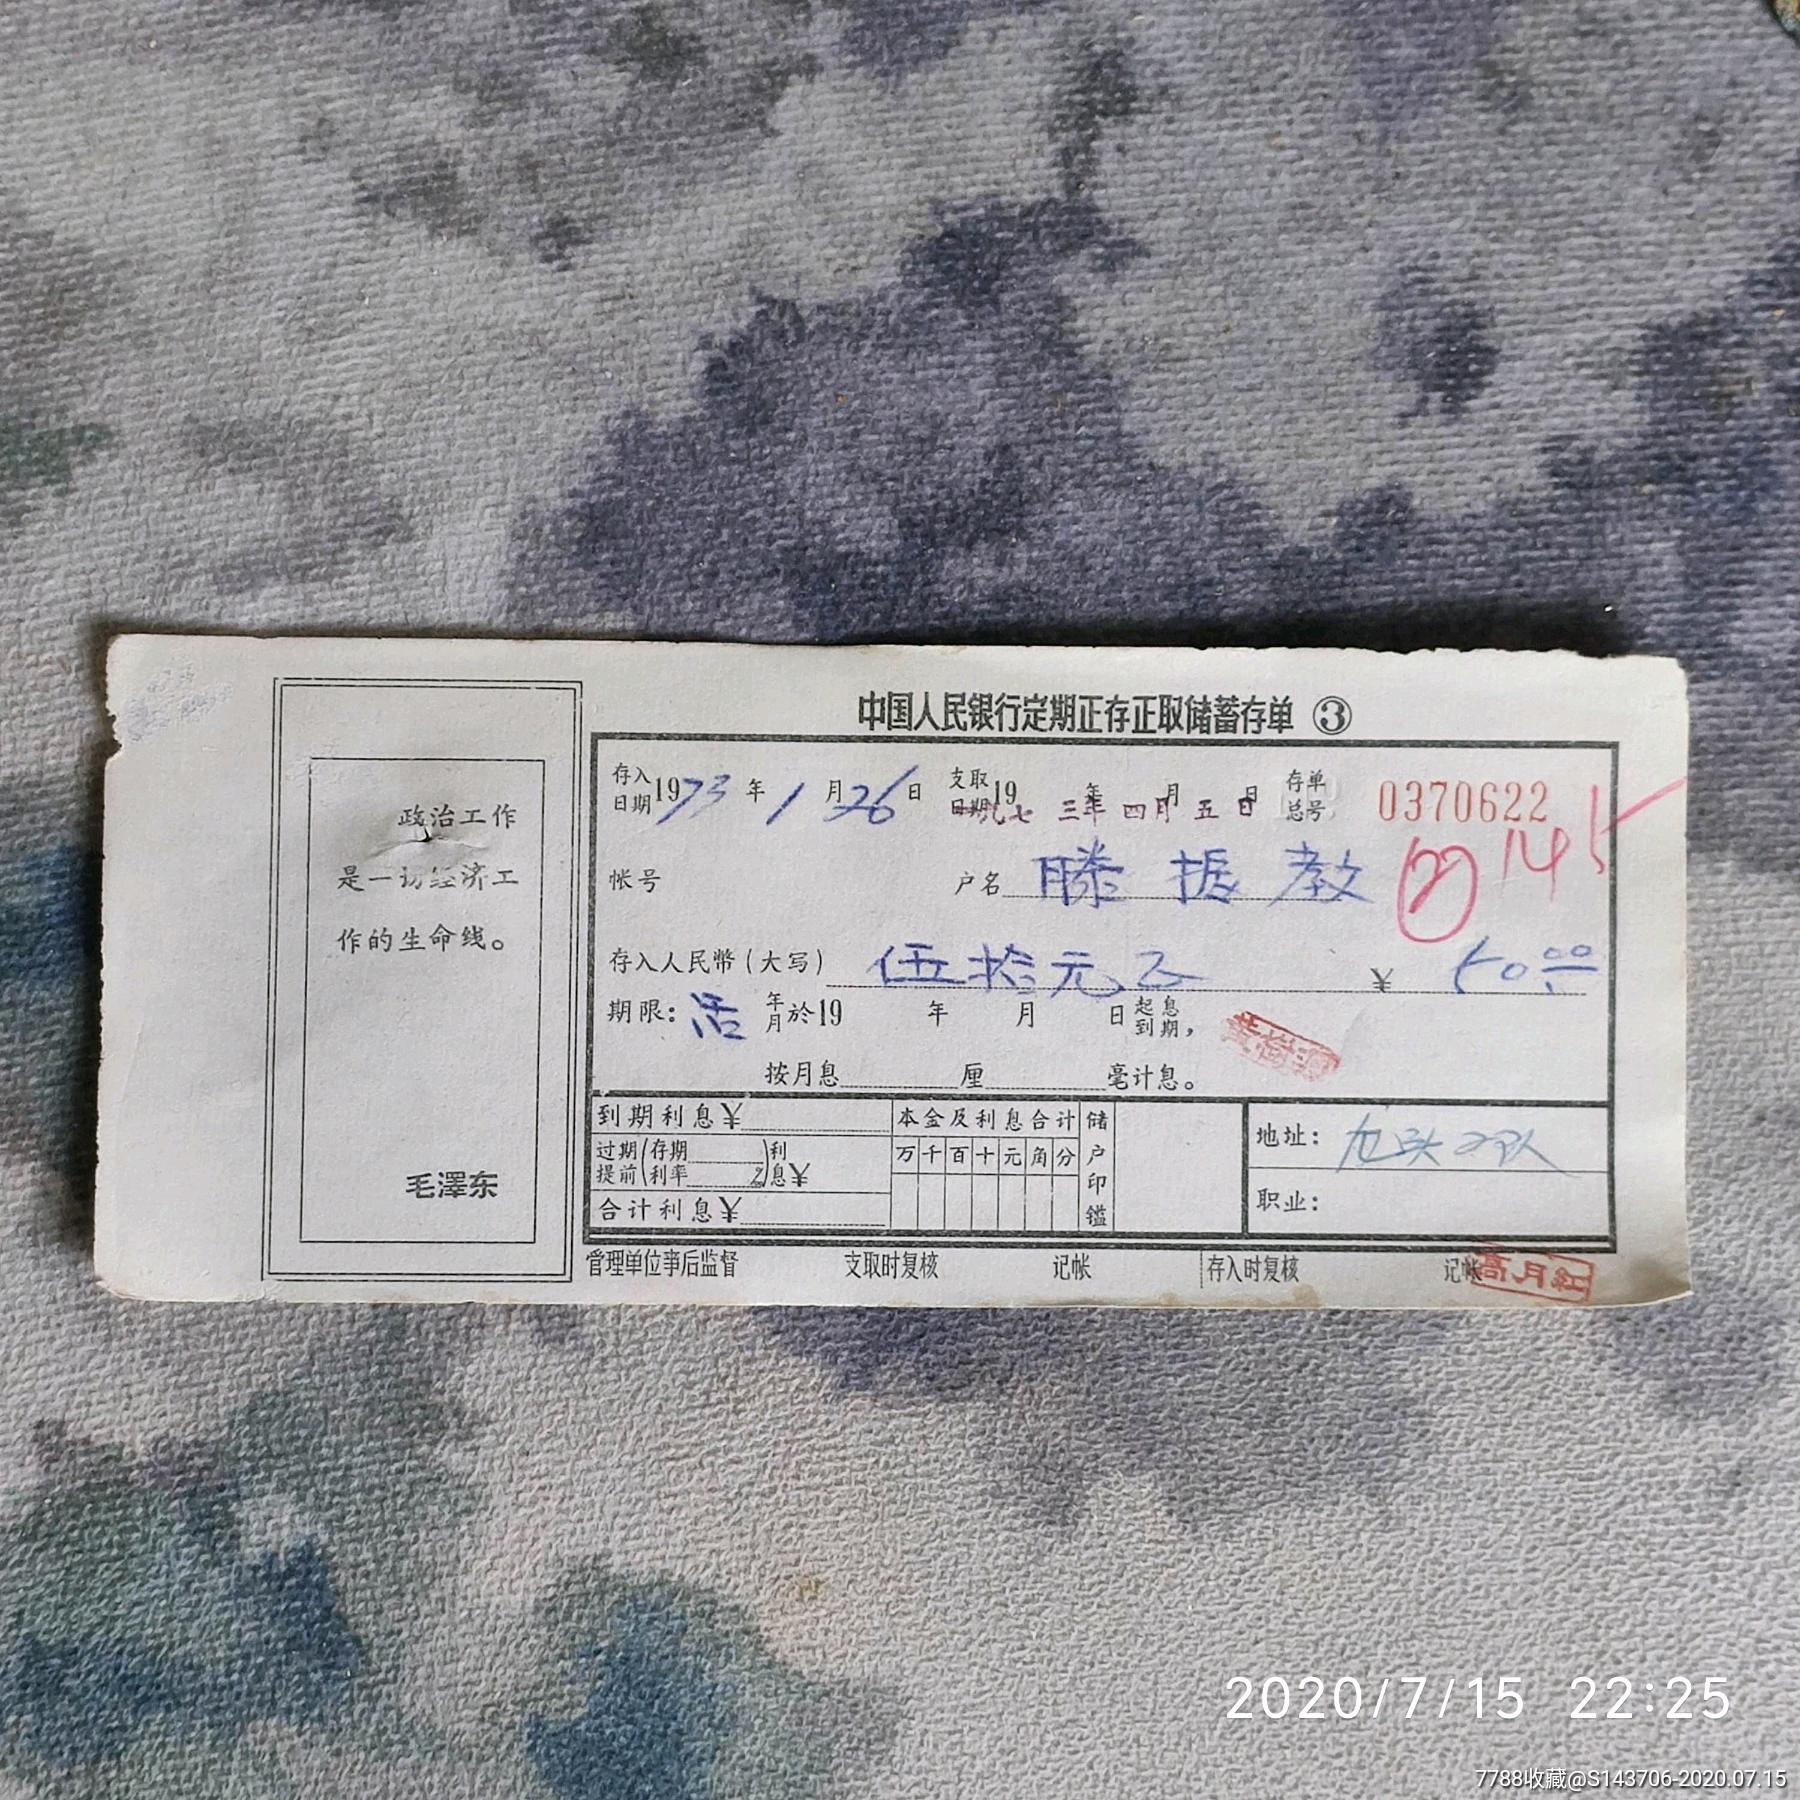 政治工作
是一切经济工
作的生命线。
毛澤东
中国人民银行定期正存正取储蓄存单 ③
存入日期 1973年1月26日 支取日期 19 年 月 日 存单总号 0370622
一九七三年四月五日
帐号 户名 滕振教
145
存入人民幣(大写) 伍拾元正 ¥ 50.00
期限: 活 年月於19 年 月 日起息到期,
按月息 厘 毫计息。
到期利息¥ 本金及利息合计 储户印鑑 地址:
过期提前(存期利率 %)利息¥ 万千百十元角分
合计利息¥ 职业:
管理单位事后监督 支取时复核 记帐 存入时复核 记帐
2020/7/15 22:25
7788收藏@S143706-2020.07.15